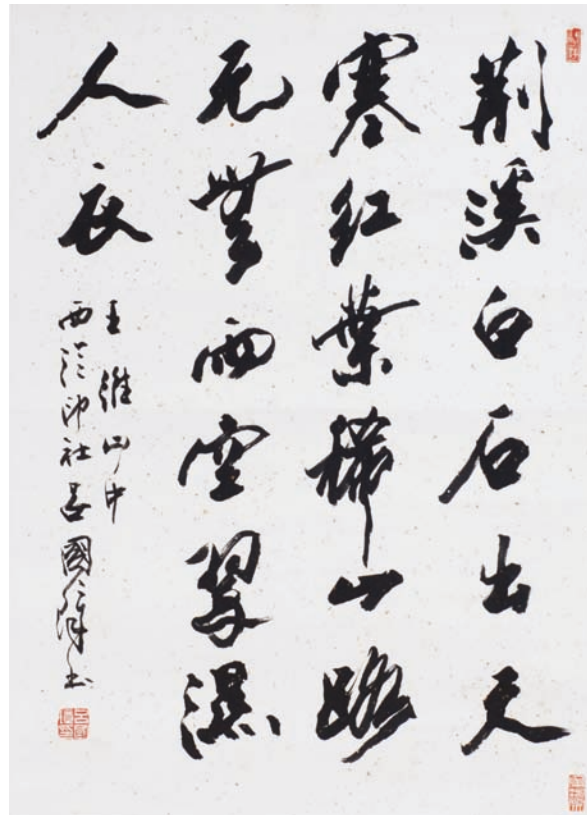 荆溪白石出天
寒红葉稀山路
元無雨空翠濕
人衣
王維山中
西泠印社吕國璋书